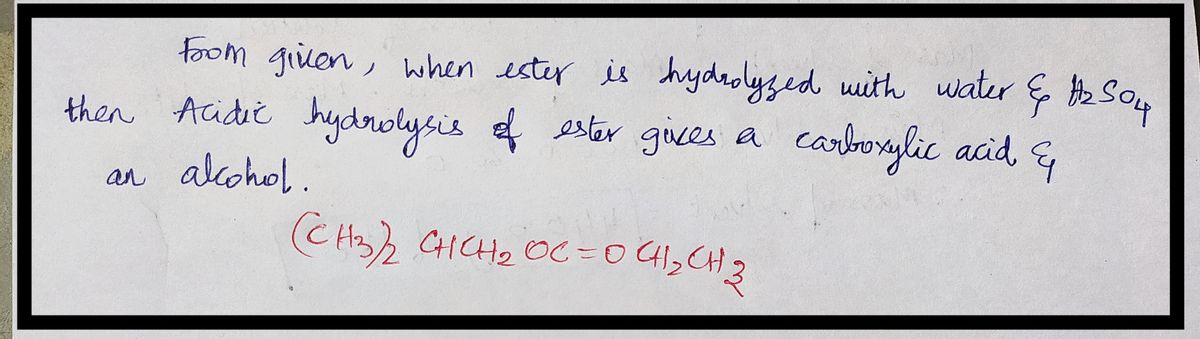 From given, when ester is hydrolyzed with water & H₂SO₄
then Acidic hydrolysis of ester gives a carboxylic acid &
an alcohol.
(CH₃)₂ CHCH₂ OC=O CH₂CH₃